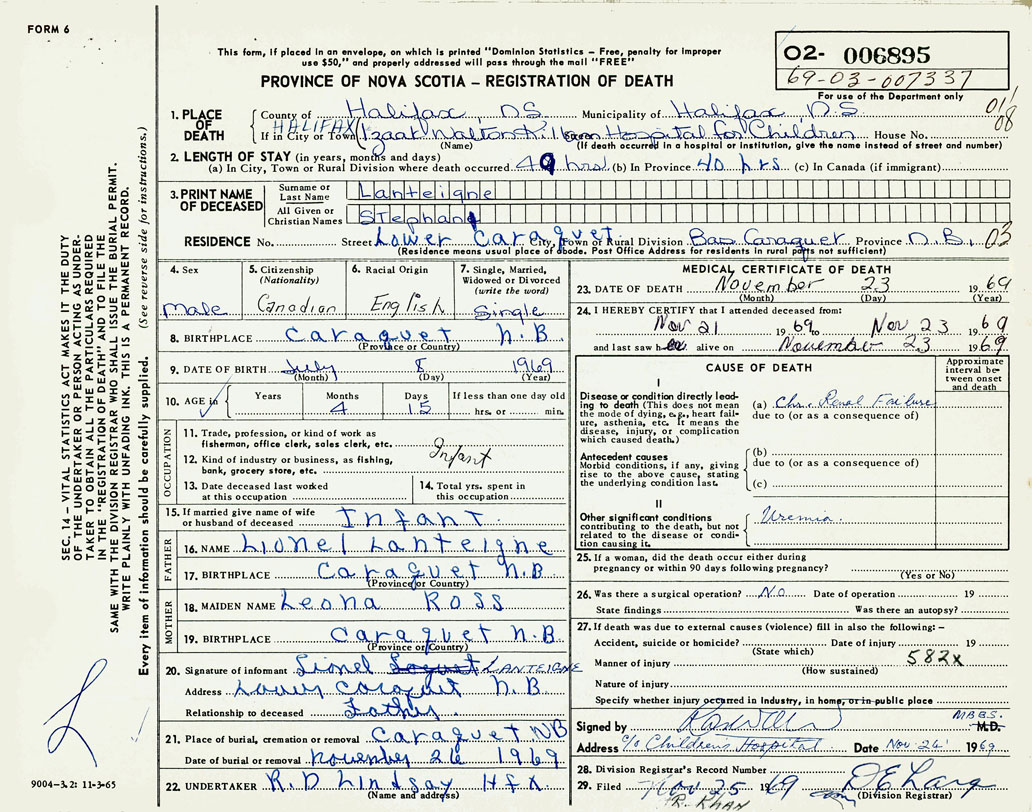 FORM 6
This form, if placed in an envelope, on which is printed "Dominion Statistics – Free, penalty for improper
use $50," and properly addressed will pass through the mail "FREE"
PROVINCE OF NOVA SCOTIA – REGISTRATION OF DEATH
02- 006895
69-03-007337
For use of the Department only
1. PLACE OF DEATH
County of Halifax, N.S. Municipality of Halifax, N.S
If in City or Town HALIFAX (Izaak Walton K Hospital for Children House No.
(Name) (If death occurred in a hospital or institution, give the name instead of street and number)
01/08
2. LENGTH OF STAY (in years, months and days)
(a) In City, Town or Rural Division where death occurred 40 hrs (b) In Province 40 hrs (c) In Canada (if immigrant)
3. PRINT NAME OF DECEASED
Surname or Last Name Lanteigne
All Given or Christian Names STephane
RESIDENCE No. Street Lower Caraquet City, Town or Rural Division Bas Caraquet Province N.B. 03
(Residence means usual place of abode. Post Office Address for residents in rural parts not sufficient)
4. Sex
Male
5. Citizenship (Nationality)
Canadian
6. Racial Origin
English
7. Single, Married, Widowed or Divorced (write the word)
Single
8. BIRTHPLACE Caraquet N.B
(Province or Country)
9. DATE OF BIRTH July 8 1969
(Month) (Day) (Year)
10. AGE in Years Months 4 Days 15 If less than one day old
hrs. or min.
OCCUPATION
11. Trade, profession, or kind of work as
fisherman, office clerk, sales clerk, etc.
Infant
12. Kind of industry or business, as fishing,
bank, grocery store, etc.
13. Date deceased last worked
at this occupation
14. Total yrs. spent in
this occupation
15. If married give name of wife
or husband of deceased Infant
FATHER
16. NAME Lionel Lanteigne
17. BIRTHPLACE Caraquet N.B
(Province or Country)
MOTHER
18. MAIDEN NAME Leona Ross
19. BIRTHPLACE Caraquet N.B
(Province or Country)
20. Signature of informant Lionel LANTEIGNE
Address Lower Caraquet N.B
Relationship to deceased Father
21. Place of burial, cremation or removal Caraquet NB
Date of burial or removal November 26 1969
22. UNDERTAKER R.D Lindsay Hfx
(Name and address)
MEDICAL CERTIFICATE OF DEATH
23. DATE OF DEATH November 23 1969
(Month) (Day) (Year)
24. I HEREBY CERTIFY that I attended deceased from:
Nov 21 1969 to Nov 23 1969
and last saw h alive on November 23 1969
CAUSE OF DEATH
Approximate interval between onset and death
I
Disease or condition directly leading to death (This does not mean the mode of dying, e.g., heart failure, asthenia, etc. It means the disease, injury, or complication which caused death.)
(a) Chr. Renal Failure
due to (or as a consequence of)
Antecedent causes
Morbid conditions, if any, giving rise to the above cause, stating the underlying condition last.
(b)
due to (or as a consequence of)
(c)
II
Other significant conditions contributing to the death, but not related to the disease or condition causing it.
Uremia
25. If a woman, did the death occur either during
pregnancy or within 90 days following pregnancy?
(Yes or No)
26. Was there a surgical operation? No Date of operation 19
State findings Was there an autopsy?
27. If death was due to external causes (violence) fill in also the following: –
Accident, suicide or homicide? Date of injury 19
(State which)
Manner of injury 582x
(How sustained)
Nature of injury
Specify whether injury occurred in Industry, in home, or in public place
Signed by M.B.B.S. M.D.
Address c/o Childrens Hospital Date Nov 26 1969
28. Division Registrar's Record Number
29. Filed Nov 25 1969
(Division Registrar)
R. KHAN
SEC. 14 – VITAL STATISTICS ACT MAKES IT THE DUTY
OF THE UNDERTAKER OR PERSON ACTING AS UNDER-
TAKER TO OBTAIN ALL THE PARTICULARS REQUIRED
IN THE "REGISTRATION OF DEATH" AND TO FILE THE
SAME WITH THE DIVISION REGISTRAR WHO SHALL ISSUE THE BURIAL PERMIT.
WRITE PLAINLY WITH UNFADING INK. THIS IS A PERMANENT RECORD.
Every item of information should be carefully supplied. (See reverse side for instructions.)
9004–3.2: 11-3-65